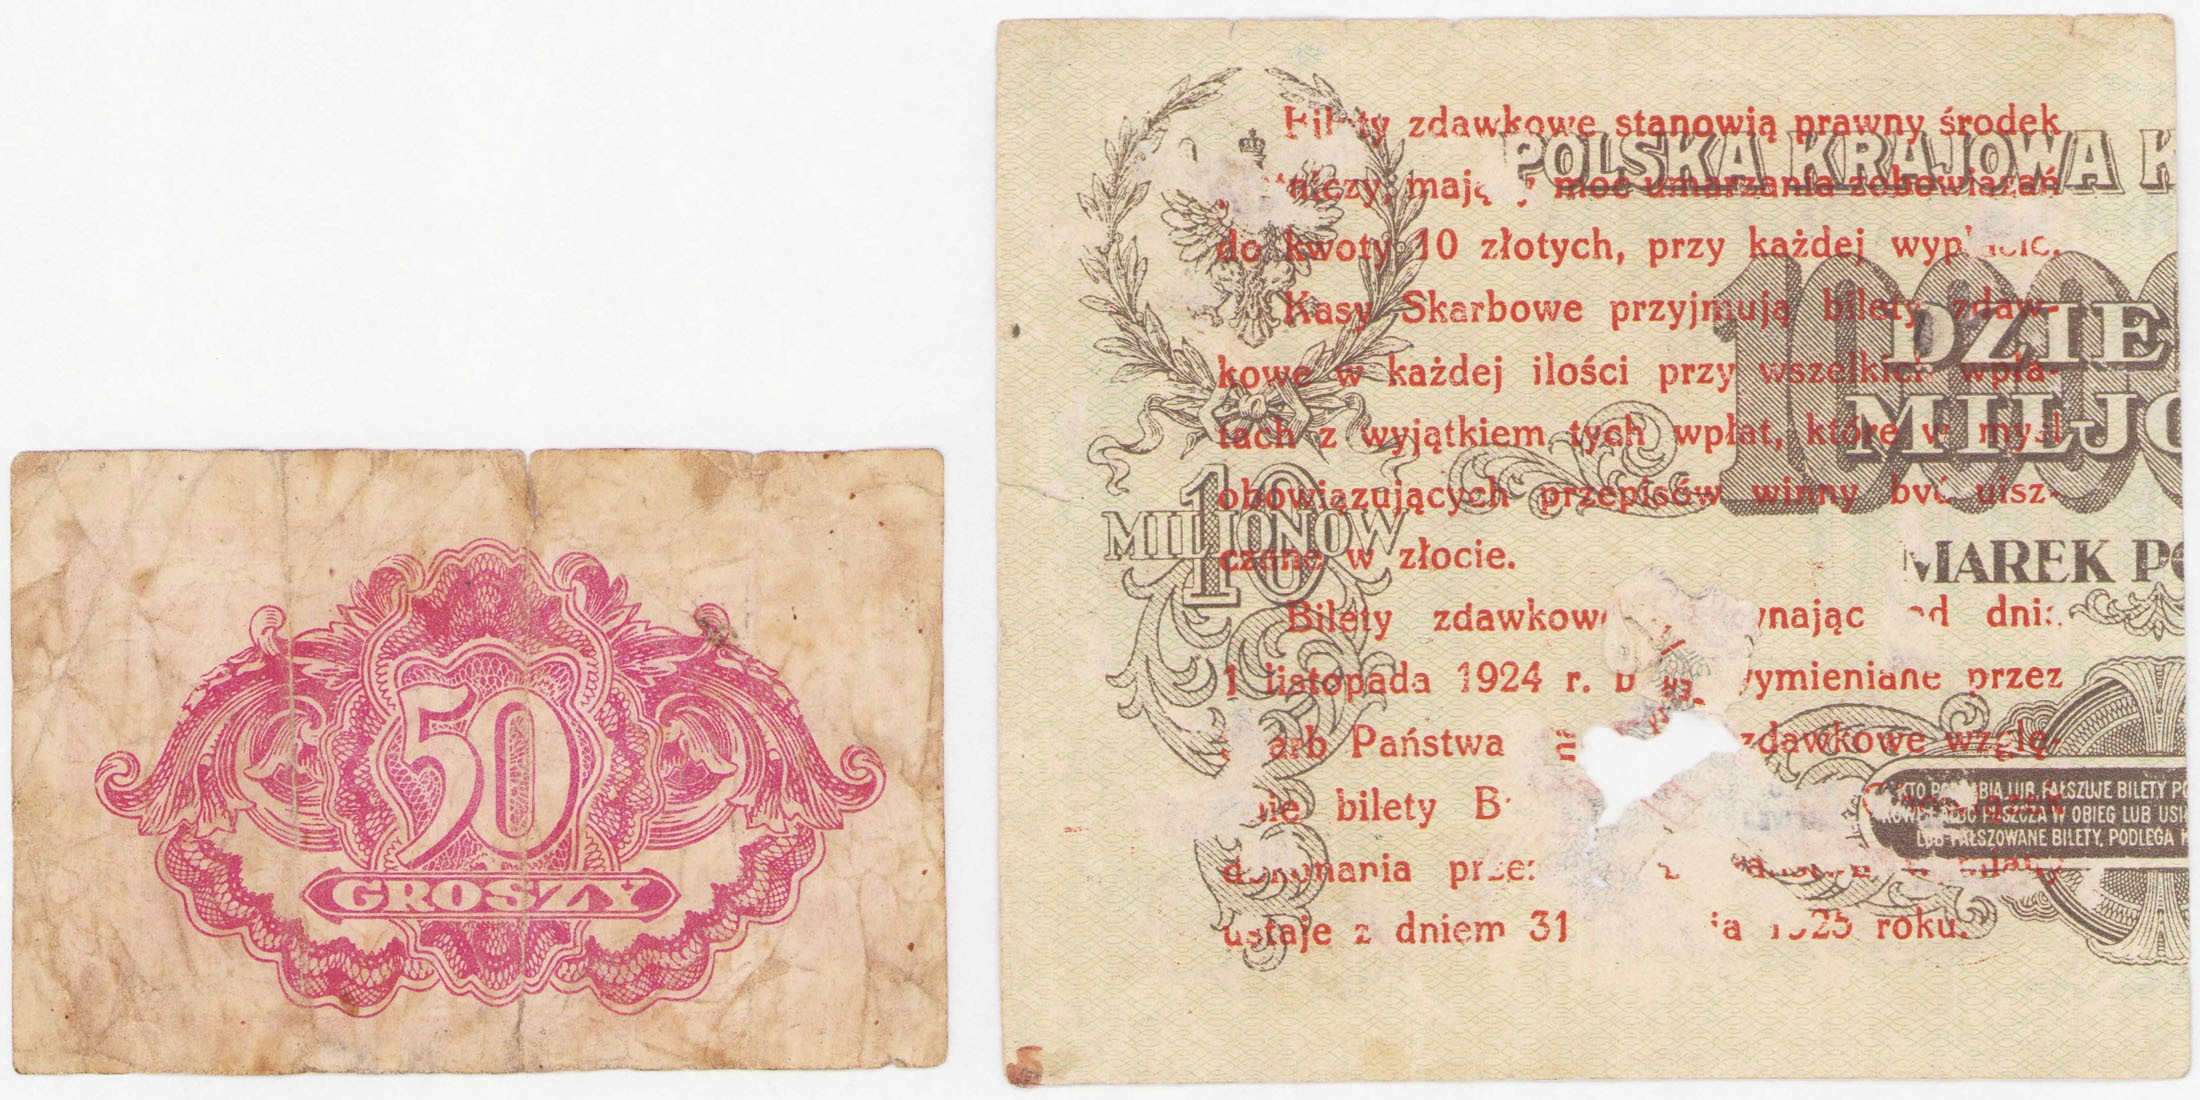 50
GROSZY
zdawkowe stanowią prawny środek
moc umarzania zobowiązań
do kwoty 10 złotych, przy każdej
Kasy Skarbowe przyjmują bilety zdaw-
kowe w każdej ilości przy wszelkich wpła-
tach z wyjątkiem tych wpłat, które w myśl
obowiązujących przepisów winny być uisz-
czane w złocie.
Bilety
1 listopada 1924 r. wymieniane przez
Państwa zdawkowe wzglę-
bilety
ustaje z dniem 31 1925 roku.
POLSKA KRAJOWA K
10
MILJONÓW
1000
DZIE
MILJO
MAREK PO
KTO PODRABIA LUB FAŁSZUJE BILETY PO
PUSZCZA W OBIEG LUB USI
LUB FAŁSZOWANE BILETY, PODLEGA K